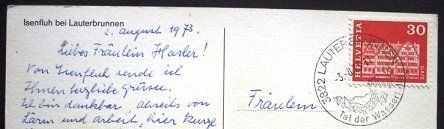 Isenfluh bei Lauterbrunnen
2. august 1973.
Liebes Fräulein Hasler!
Von Isenfluh sende ich
Ihnen herzliche Grüsse.
Ich bin dankbar, abseits von
Lärm und arbeit, hier kurze
Fräulein
HELVETIA
30
3822 LAUTERBRUNNEN
Tal der Wasser